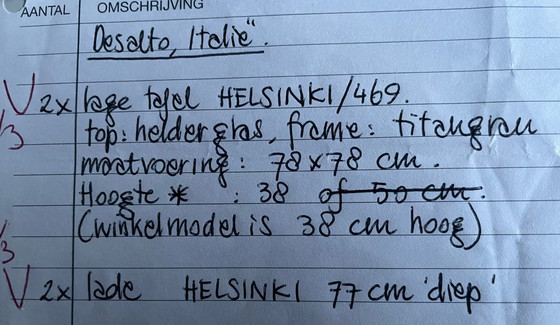 AANTAL OMSCHRIJVING
Desalto, Italië".
V 2x lage tafel HELSINKI/469.
top: helder glas, frame: titangrau
/3
maatvoering: 78 x 78 cm.
Hoogte * : 38 of 50 cm.
(winkelmodel is 38 cm hoog)
/3
V 2x lade HELSINKI 77 cm 'diep'